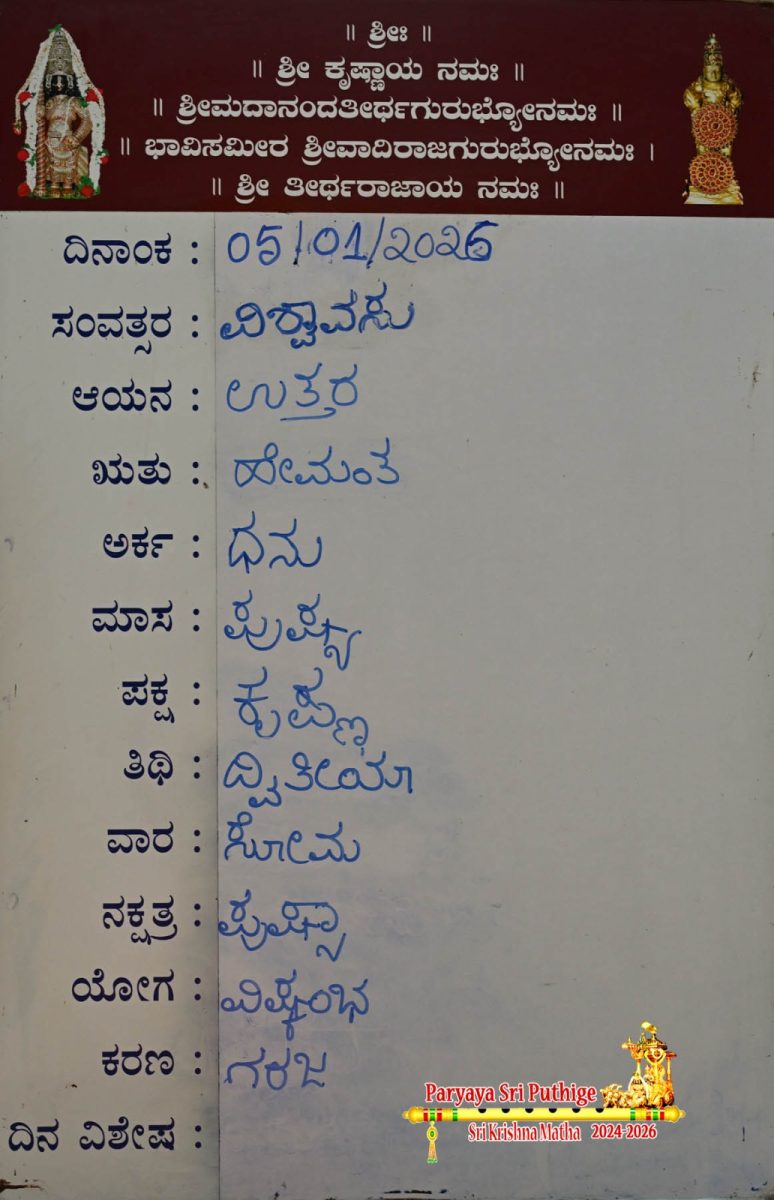 ॥ ಶ್ರೀಃ ॥
॥ ಶ್ರೀ ಕೃಷ್ಣಾಯ ನಮಃ ॥
॥ ಶ್ರೀಮದಾನಂದತೀರ್ಥಗುರುಭ್ಯೋನಮಃ ॥
॥ ಭಾವಿಸಮೀರ ಶ್ರೀವಾದಿರಾಜಗುರುಭ್ಯೋನಮಃ ।
॥ ಶ್ರೀ ತೀರ್ಥರಾಜಾಯ ನಮಃ ॥
ದಿನಾಂಕ : 05/01/2026
ಸಂವತ್ಸರ : ವಿಶ್ವಾವಸು
ಆಯನ : ಉತ್ತರ
ಋತು : ಹೇಮಂತ
ಅರ್ಕ : ಧನು
ಮಾಸ : ಪುಷ್ಯ
ಪಕ್ಷ : ಕೃಷ್ಣ
ತಿಥಿ : ದ್ವಿತೀಯಾ
ವಾರ : ಸೋಮ
ನಕ್ಷತ್ರ : ಪುಷ್ಯಾ
ಯೋಗ : ವಿಷ್ಕಂಭ
ಕರಣ : ಗರಜ
ದಿನ ವಿಶೇಷ :
Paryaya Sri Puthige
Sri Krishna Matha 2024-2026